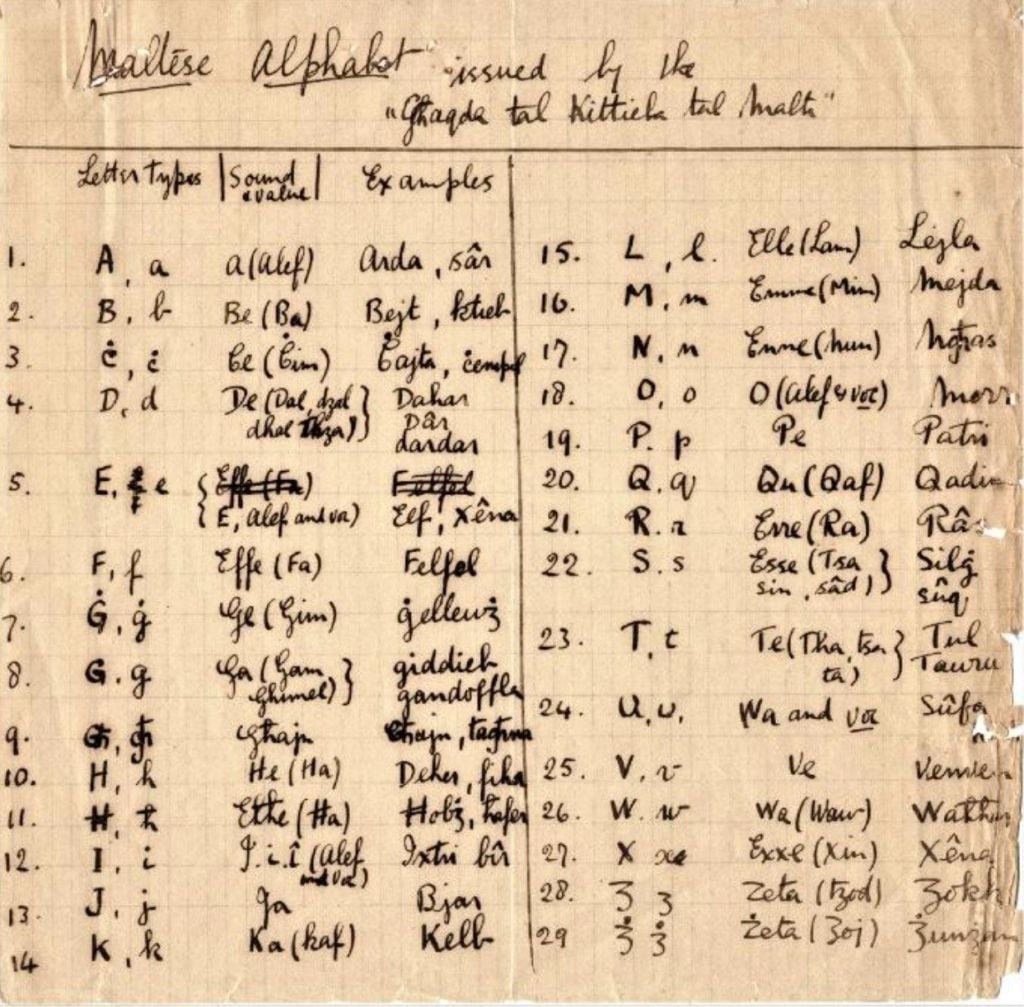 Maltese Alphabet issued by the
"Għaqda tal Kittieba tal Malti"
Letter types | Sound value | Examples
1. A, a a (Alef) Arda, sâr
2. B, b Be (Ba) Bejt, ktieb
3. Ċ, ċ Ċe (Ċim) Ċajta, ċempel
4. D, d De (Dal, dzal Dahar
dhal Dâr
dardar
5. E, e Effe (Fa) Felfel
E, Alef and voc) Elf, Xêna
6. F, f Effe (Fa) Felfel
7. Ġ, ġ Ġe (Ġim) ġellewż
8. G, g Ga (Gam giddieb
Ghimel) gandoffla
9. Għ, għ Għajn Għajn, tagħna
10. H, h He (Ha) Deher, fiha
11. Ħ, ħ Eħħe (Ħa) Ħobż, ħafer
12. I, i I. i. î (Alef Ixtri bîr
and voc)
13. J, j Ja Bjar
14 K, k Ka (kaf) Kelb
15. L, l. Elle (Lam) Lejla
16. M, m Emme (Mim) Mejda
17. N, n Enne (Nun) Ngħas
18. O, o O (Alef & voc) Morr
19. P. p Pe Patri
20. Q. q Qu (Qaf) Qadim
21. R. r Erre (Ra) Râs
22. S. s Esse (Tsa Silġ
sin, sâd) sûq
23. T, t Te (Tha, tsa Tul
ta)
24. U, u, Wa and voc Sûfa
25. V, v Ve
26. W. w Wa (Waw)
27. X x Exxe (Xin) Xêna
28. Ʒ ʒ Zeta (tzod)
29 Ʒ̇ ʒ̇ Żeta (Ʒoj)